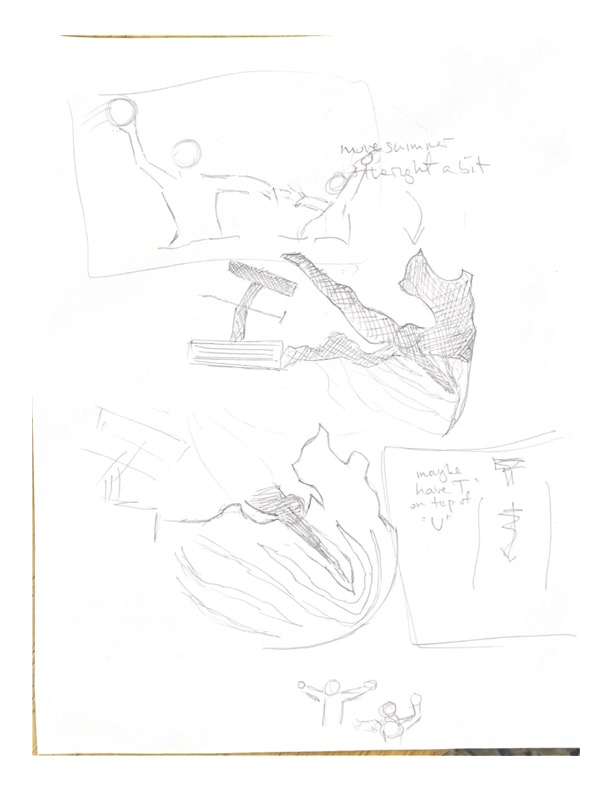 move swimmer
height a bit
maybe
have "T"
on top of
"U"